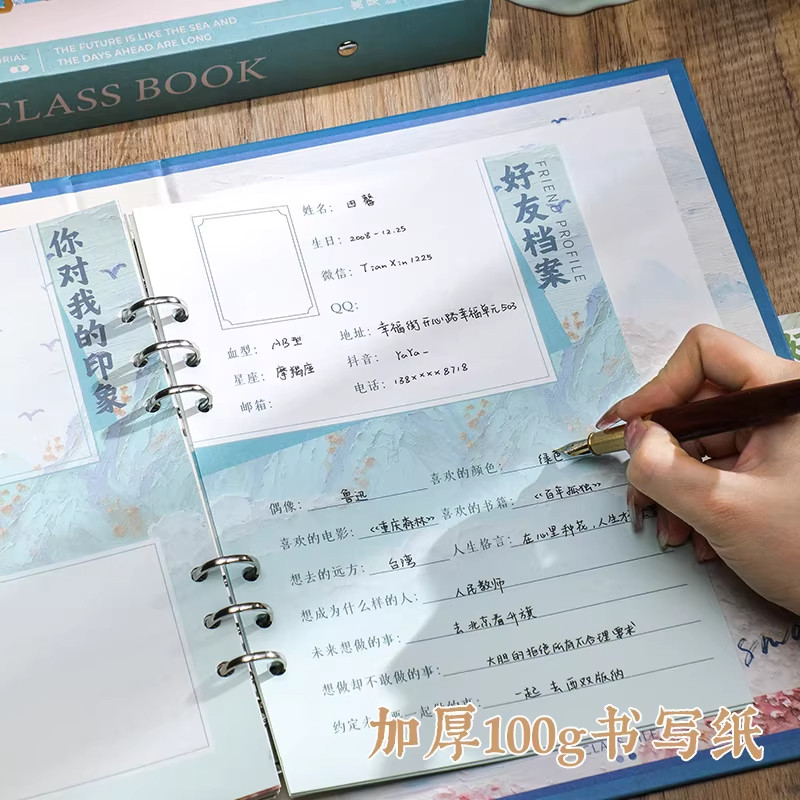 THE FUTURE IS LIKE THE SEA AND
THE DAYS AHEAD ARE LONG
CLASS BOOK
你对我的印象
好友档案
FRIEND PROFILE
姓名: 田馨
生日: 2008-12.25
微信: TianXin1225
QQ:
血型: AB型
地址: 幸福街开心路幸福单元503
星座: 摩羯座
抖音: YaYa-
邮箱:
电话: 138××××8718
偶像: 鲁迅
喜欢的颜色: 绿色
喜欢的电影: 《重庆森林》
喜欢的书籍: 《百年孤独》
想去的远方: 台湾
人生格言: 在心里种花,人生才
想成为什么样的人: 人民教师
未来想做的事: 去北京看升旗
想做却不敢做的事: 大胆的拒绝所有不合理要求
约定 要一起做的事: 一起去西双版纳
加厚100g书写纸